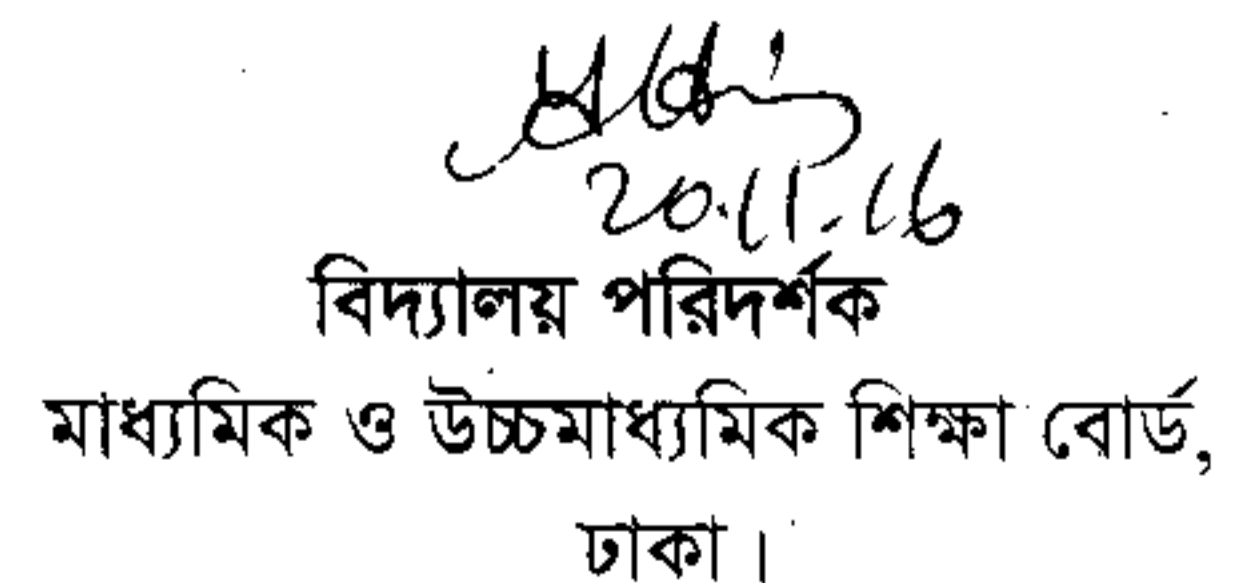 20.11.16
বিদ্যালয় পরিদর্শক
মাধ্যমিক ও উচ্চমাধ্যমিক শিক্ষা বোর্ড,
ঢাকা।